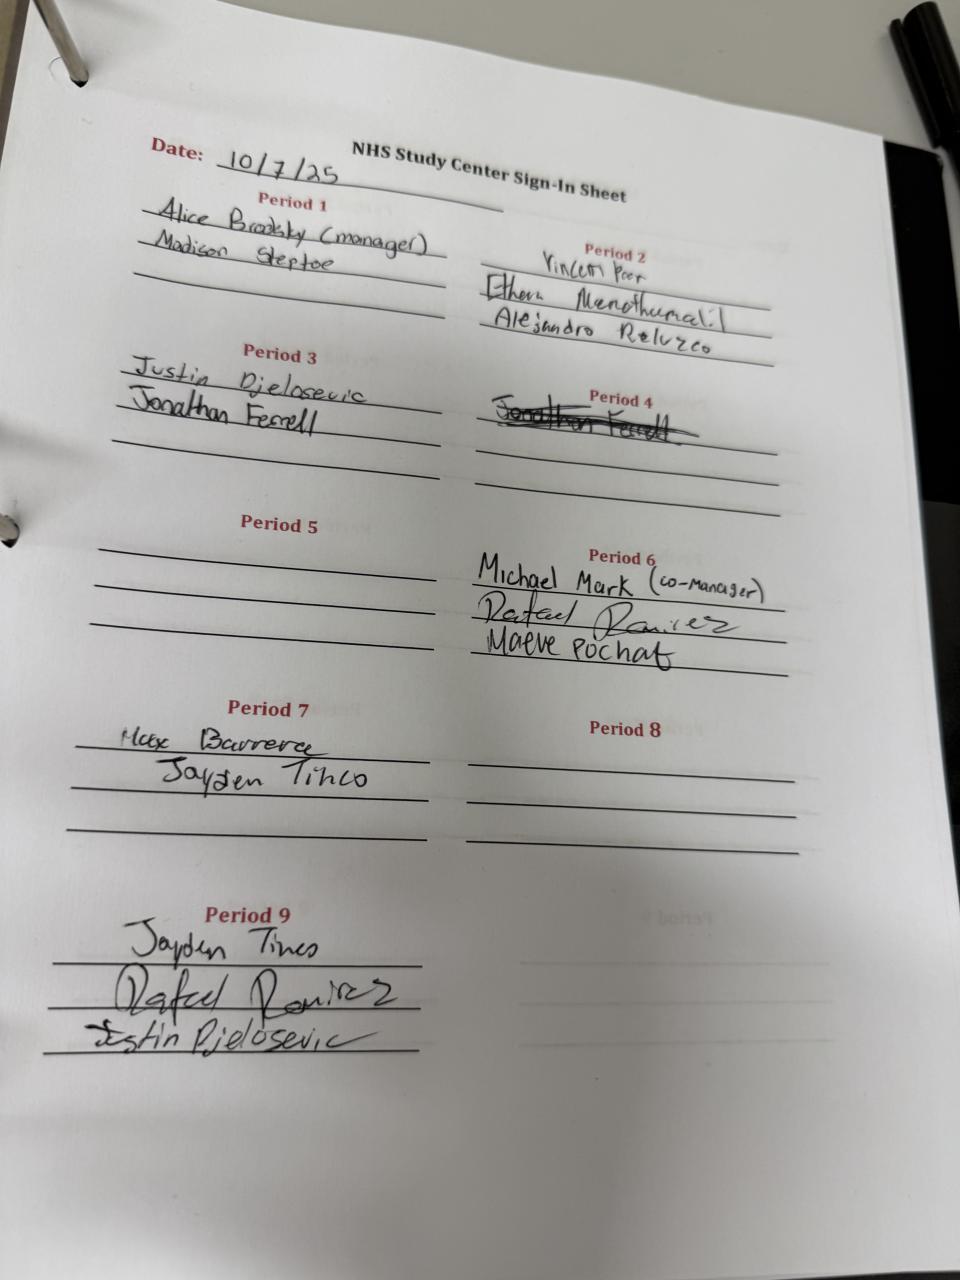 NHS Study Center Sign-In Sheet
Date: 10/7/25
Period 1
Alice Brodsky (manager)
Madison Steptoe
Period 2
Vincent Poer
Ethan Manothumalil
Alejandro Reluzco
Period 3
Justin Djelosevic
Jonathan Ferrell
Period 4
Jonathan Ferrell
Period 5
Period 6
Michael Mark (co-manager)
Rafael Ramirez
Maeve Pochat
Period 7
Barrera
Jayden Tinco
Period 8
Period 9
Jayden Tinco
Rafael Ramirez
Justin Djelosevic